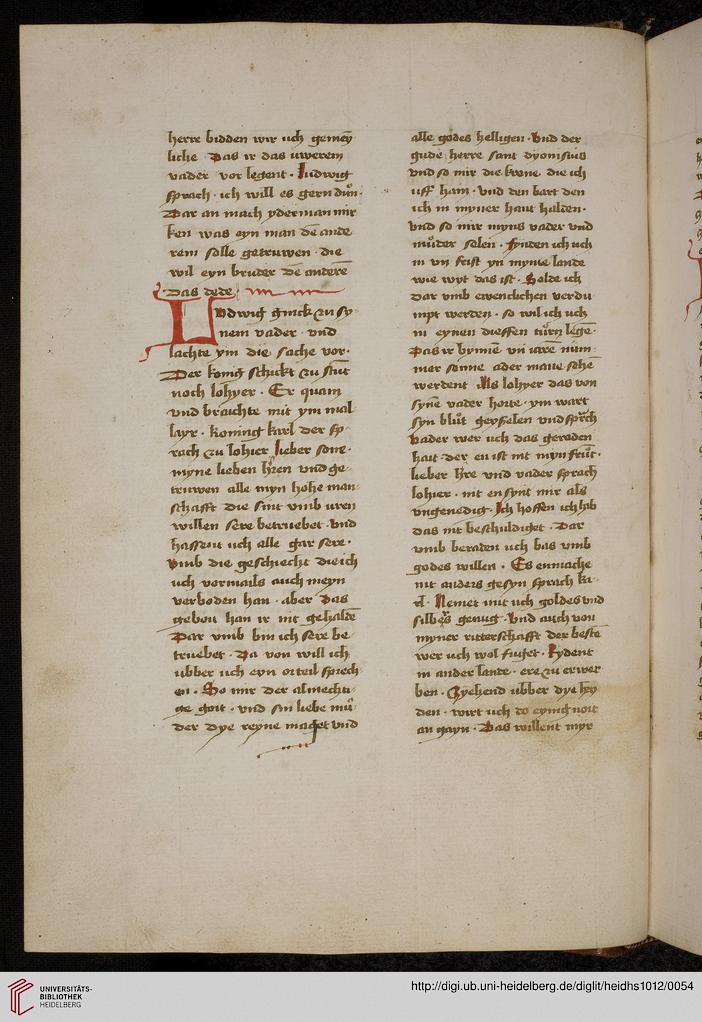 herre bidden wir uch gemey
liche · Das ir das uwerem
vader vor legent · Ludwig
sprach · ich will es gern dun ·
Dar an mach yderman mir
ken was eyn man dē ande
rem solle getruwen · die
wil eyn bruder dē anderē
das dede ·
Ludwig ginck zu sy
nem vader · vnd
lachte ym die sache vor ·
Der konig schickt zu stūt
noch lohyer · Er quam
vnd brachte mit ym mal
layr · koning karl der sp
rach zu lohier lieber sone ·
myne lieben hren vnd ge
truwen alle myn hohe man
schafft die sint vmb uren
willen sere betruebet · vnd
hassent uch alle gar sere ·
vmb die geschiecht die ich
uch vormails auch meyn
verboden han · aber das
gebott han ir nit gehaldē
Dar vmb bin ich sere be
truebet · Da von will ich
ubber uch eyn orteil sprech
en · So mir der almechti
ge gott · vnd sin liebe mů
der dye reyne maget vnd
alle godes helligen · Vnd der
gude herre sant dyonisius
vnd so mir die krone die ich
uff han · vnd den bart den
ich in myner hant halden ·
vnd so mir myns vader vnd
můder selen · fynden ich uch
in vn frist yn myme lande
wie wyt das ist · Solde ich
dar vmb ewenclichen verdu
mpt werden · so wil ich uch
in eynen dieffen tůrn legē
Das ir bynnē vn iarē num
mer sonne ader mane sehē
werdent · Als lohyer das von
syne vader horte · ym wart
syn blůt geyselen vnd sprch
Vader wer uch das geraden
hait der en ist nit myn frůt ·
lieber hre vnd vader sprach
lohier · nit en synt mir als
vngenedig · Ich hoffen ich hab
das nit beschuldiget · Dar
vmb beraden uch bas vmb
godes willen · Es enmache
nit anders gesyn sprach ka
rl · Nemet mit uch goldes vnd
silbers genug · Vnd auch von
myner ritterschafft der beste
wer uch wol fuget · Rydent
in ander lande · ere zu erwer
ben · Zyehend ubber dye hey
den · wirt uch do eynig noit
an gayn · Das willent myr
UNIVERSITÄTS-
BIBLIOTHEK
HEIDELBERG
http://digi.ub.uni-heidelberg.de/diglit/heidhs1012/0054